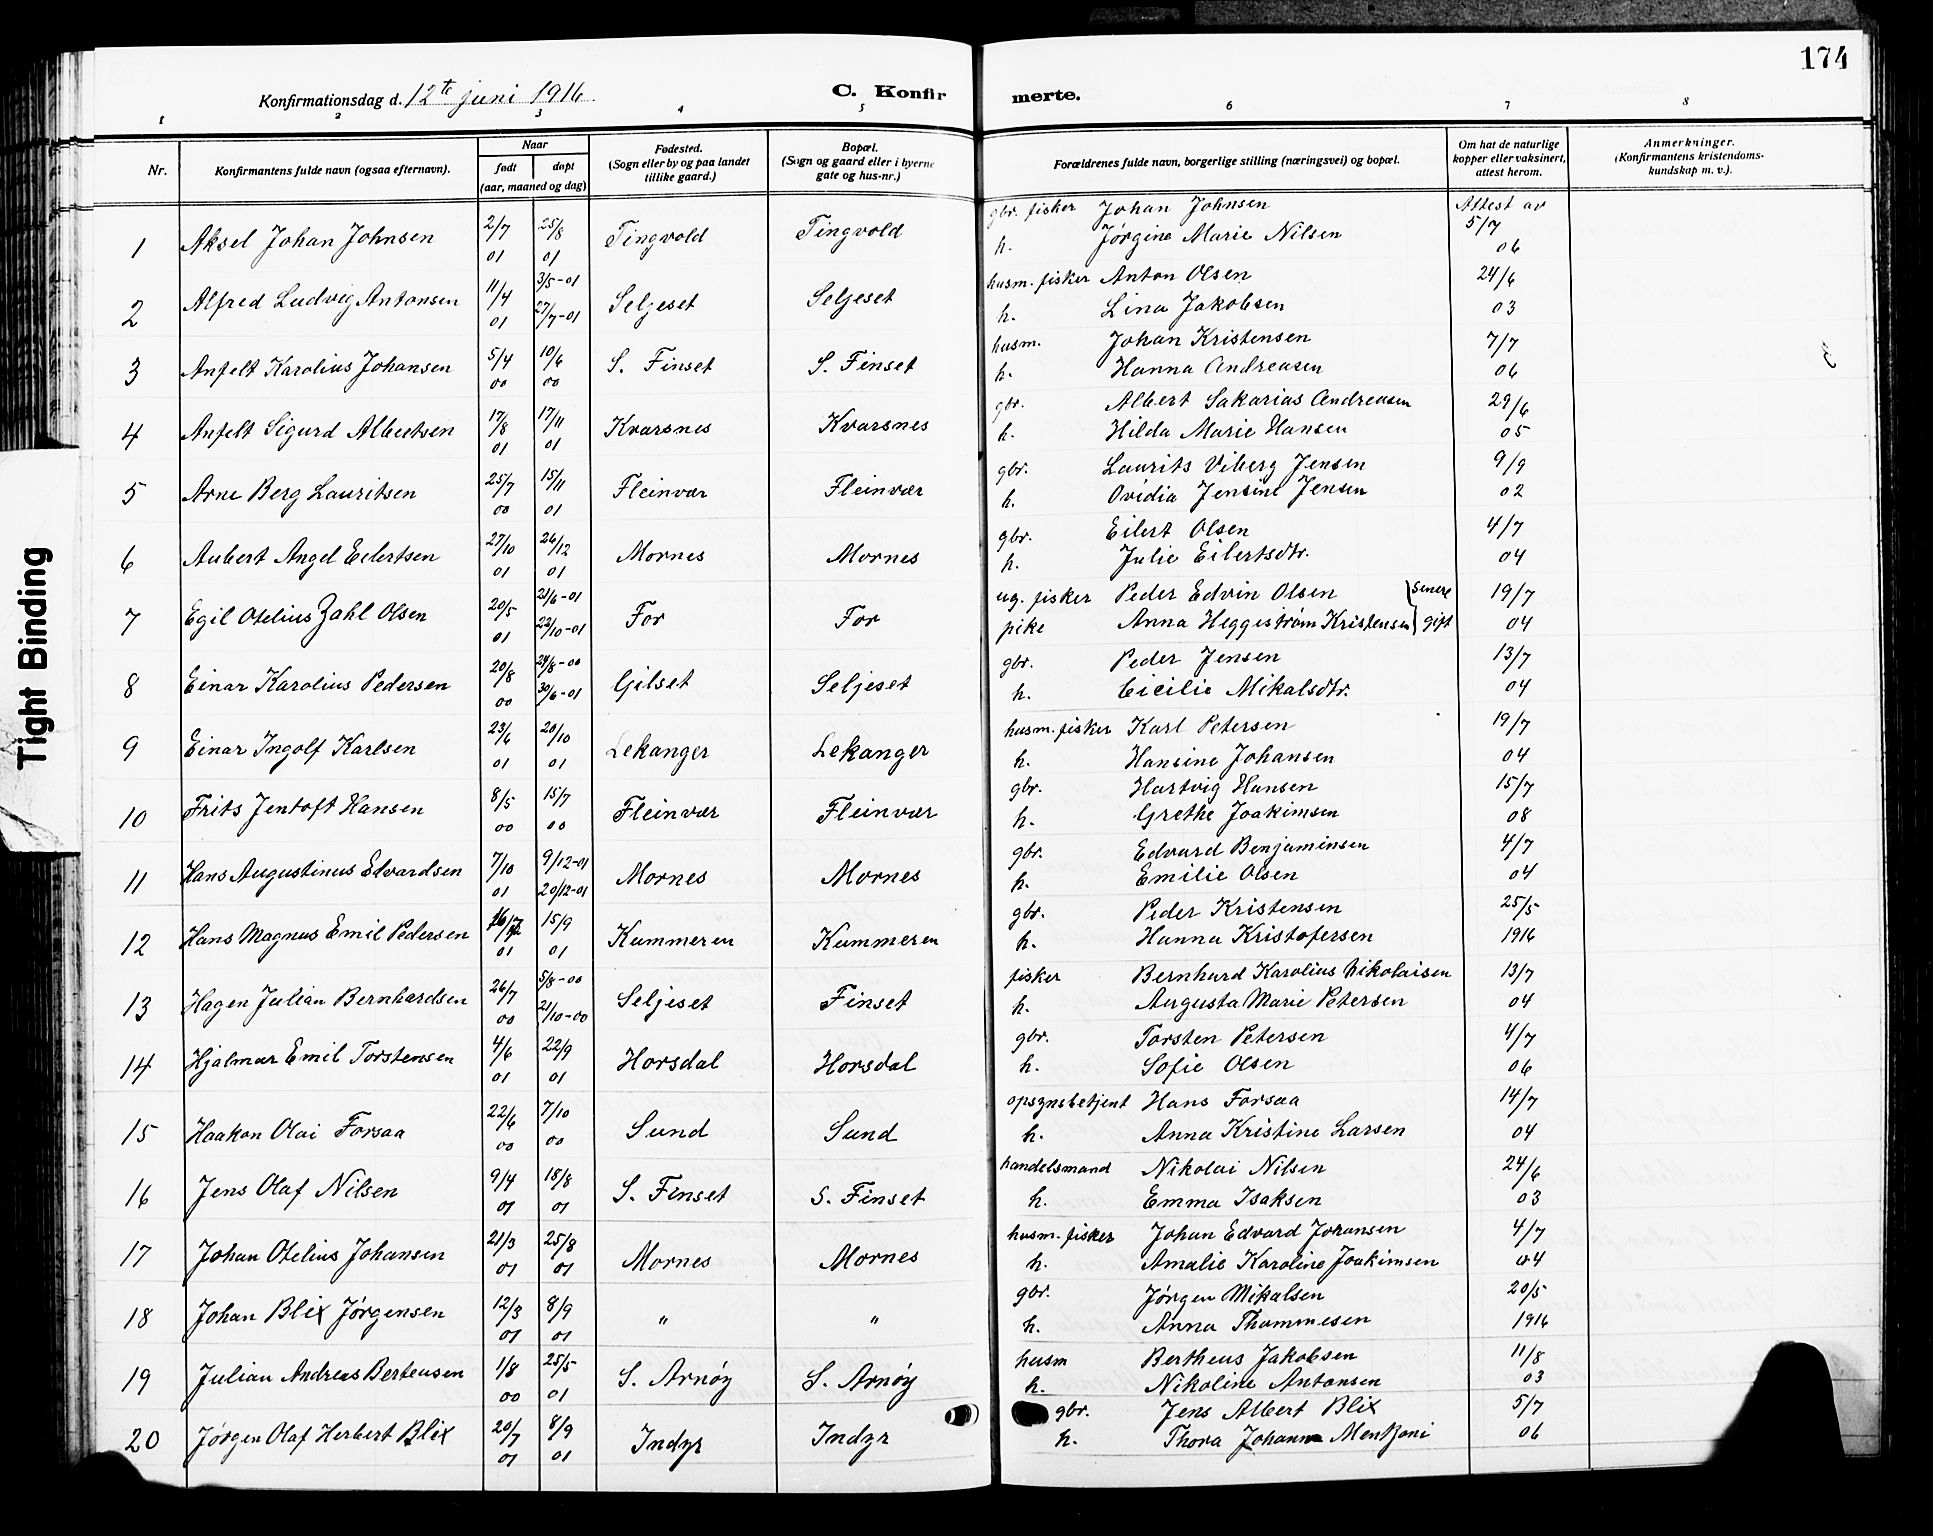 174
Konfirmationsdag d. 12te juni 1916. C. Konfirmerte.
1 2 3 4 5 6 7 8
Nr. Konfirmantens fulde navn (ogsaa efternavn). Naar født døpt (aar, maaned og dag) Fødested. (Sogn eller by og paa landet tillike gaard.) Bopæl. (Sogn og gaard eller i byerne gate og hus-nr.) Forældrenes fulde navn, borgerlige stilling (næringsvei) og bopæl. Om hat de naturlige kopper eller vaksinert, attest herom. Anmerkninger. (Konfirmantens kristendomskundskap m. v.).
Attest av
1 Aksel Johan Johnsen 2/7 01 25/8 01 Tingvold Tingvold gbr. fisker Johan Johnsen 5/7
h. Jørgine Marie Nilsen 06
2 Alfred Ludvig Antonsen 11/4 01 3/5-01 27/7-01 Seljeset Seljeset husm. fisker Anton Olsen 24/6
h. Lina Jakobsen 03
3 Anfelt Karolius Johansen 5/4 00 10/6 00 S. Finset S. Finset husm. Johan Kristensen 7/7
h. Hanna Andreasen 06
4 Anfelt Sigurd Albertsen 17/8 01 17/11 01 Kvarsnes Kvarsnes gbr. Albert Sakarias Andreasen 29/6
h. Hilda Marie Hansen 05
5 Arne Berg Lauritsen 25/7 00 15/11 01 Fleinvær Fleinvær gbr. Laurits Viberg Jensen 9/9
h. Ovidia Jensine Jensen 02
6 Aubert Angel Eilertsen 27/10 01 26/12 01 Mornes Mornes gbr. Eilert Olsen 4/7
h. Julie Eilertsdtr. 04
7 Egil Otelius Zahl Olsen 20/5 01 21/6-01 22/10-01 For For ug. fisker Peder Edvin Olsen } senere 19/7
pike Anna Heggistrøm Kristensen } gift 04
8 Einar Karolius Pedersen 20/8 00 24/8-00 30/6-01 Gilset Seljeset gbr. Peder Jensen 13/7
h. Cicilie Mikalsdtr. 04
9 Einar Ingolf Karlsen 23/6 01 20/10 01 Lekanger Lekanger husm. fisker Karl Petersen 19/7
h. Hansine Johansen 04
10 Frits Jentoft Hansen 8/5 00 15/7 00 Fleinvær Fleinvær gbr. Hartvig Hansen 15/7
h. Grethe Joakimsen 08
11 Hans Augustinus Edvardsen 7/10 01 9/12-01 20/12-01 Mornes Mornes gbr. Edvard Benjaminsen 4/7
h. Emilie Olsen 04
12 Hans Magnus Emil Pedersen 01 15/9 01 Kummeren Kummeren gbr. Peder Kristensen 25/5
h. Hanna Kristofersen 1916
13 Hagen Julian Bernhardsen 26/7 00 5/8-00 21/10-00 Seljeset Finset fisker Bernhard Karolius Nikolaisen 13/7
h. Augusta Marie Petersen 04
14 Hjalmar Emil Torstensen 4/6 01 22/9 01 Horsdal Horsdal gbr. Torsten Petersen 4/7
h. Sofie Olsen 06
15 Haakon Olai Forsaa 22/6 00 7/10 00 Sund Sund opsynsbetjent Hans Forsaa 14/7
h. Anna Kristine Larsen 04
16 Jens Olaf Nilsen 9/4 01 18/8 01 S. Finset S. Finset handelsmand Nikolai Nilsen 24/6
h. Emma Isaksen 03
17 Johan Otelius Johansen 21/3 01 25/8 01 Mornes Mornes husm. fisker Johan Edvard Johansen 4/7
h. Amalie Karoline Joakimsen 04
18 Johan Blix Jørgensen 12/3 01 8/9 01 " " gbr. Jørgen Mikalsen 20/5
h. Anna Thommesen 1916
19 Julian Andreas Berteusen 1/8 00 25/5 01 S. Arnøy S. Arnøy husm Bertheus Jakobsen 11/8
h. Nikoline Antonsen 03
20 Jørgen Olaf Herbert Blix 20/7 01 8/9 01 Indyr Indyr gbr. Jens Albert Blix 5/7
h. Thora Johanne Mentzoni 06
Tight Binding